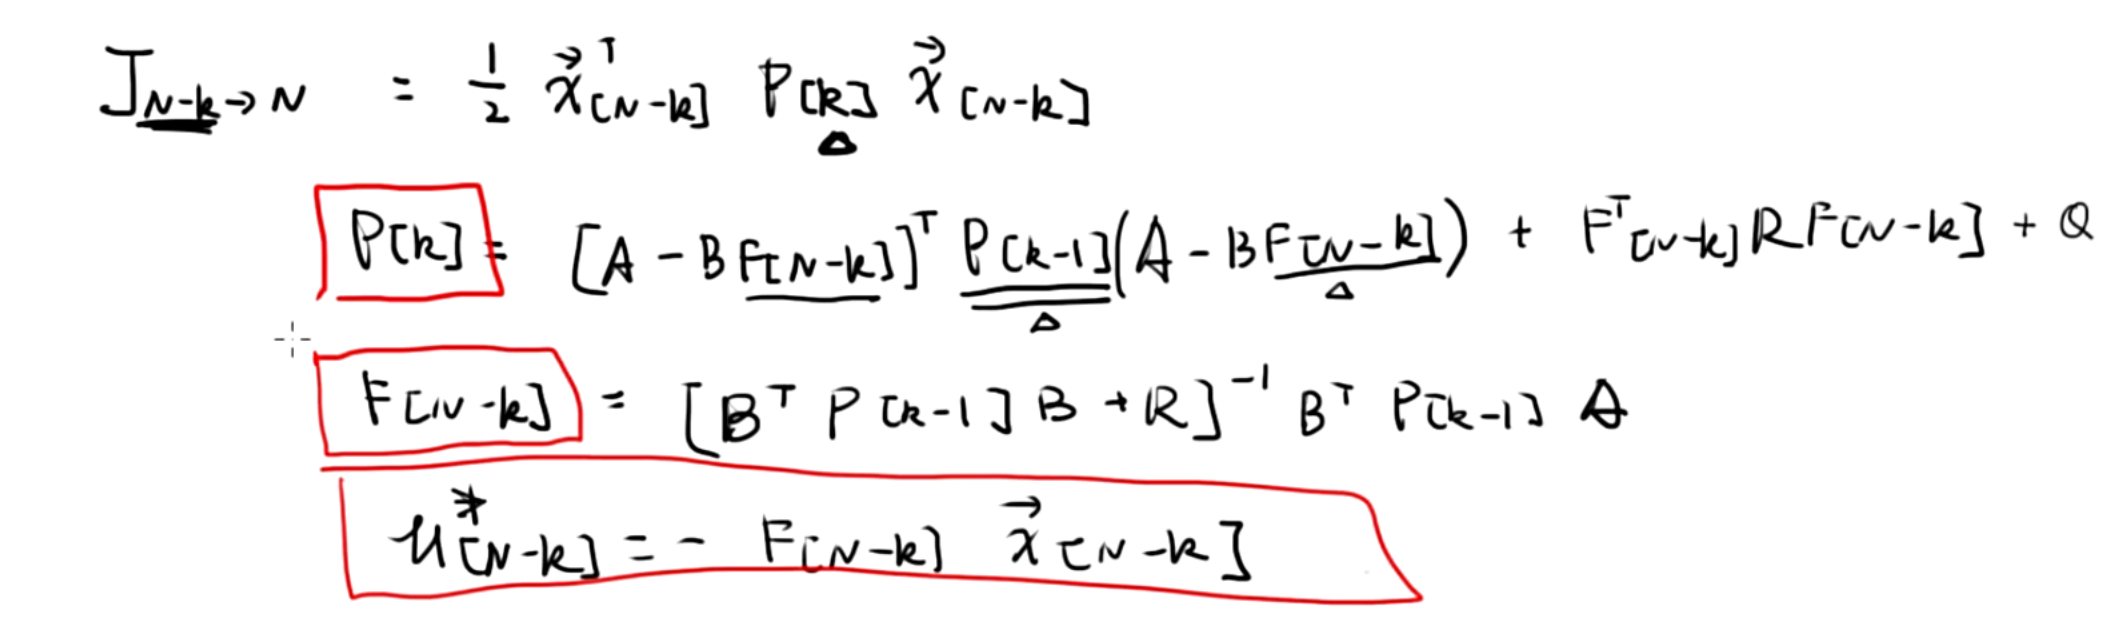 J_{N-k→N} = \frac{1}{2} \vec{x}^T_{[N-k]} P[k] \vec{x}_{[N-k]}
P[k] = [A - B F[N-k]]^T P[k-1] (A - B F[N-k]) + F^T_{[N-k]} R F[N-k] + Q
F[N-k] = [B^T P[k-1] B + R]^{-1} B^T P[k-1] A
u^*_{[N-k]} = - F[N-k] \vec{x}[N-k]